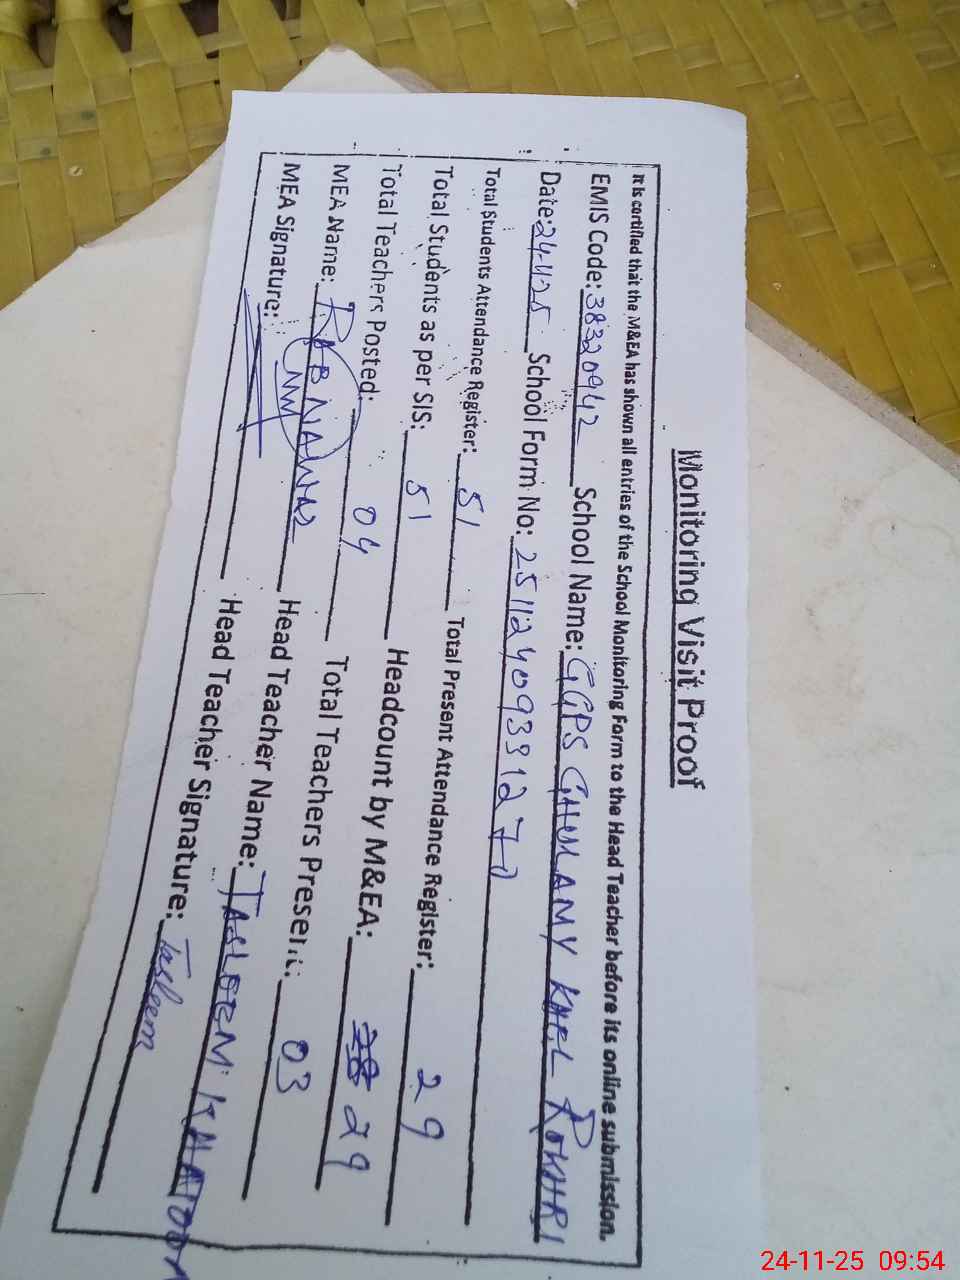 Monitoring Visit Proof
It is certified that the M&EA has shown all entries of the School Monitoring Form to the Head Teacher before its online submission.
EMIS Code: 38320942 School Name: GGPS GHULAMY KHEL ROKHRI
Date: 24-11-25 School Form No:
Total Students Attendance Register: 51 Total Present Attendance Register: 29
Total Students as per SIS: 51 Headcount by M&EA: 29
Total Teachers Posted: 04 Total Teachers Present: 03
MEA Name: RAB NAWAZ Head Teacher Name: TASLEEM KHATOON
MEA Signature: Head Teacher Signature: Tasleem
24-11-25 09:54